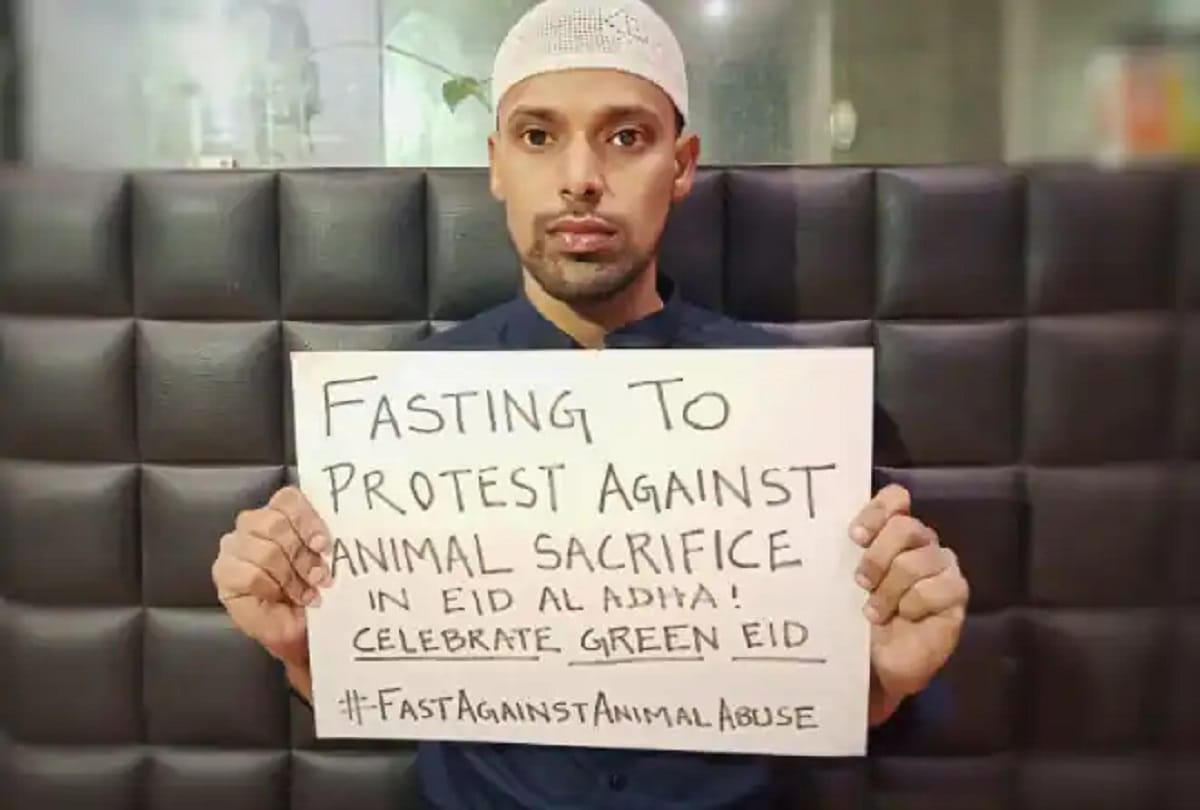 FASTING TO
PROTEST AGAINST
ANIMAL SACRIFICE
IN EID AL ADHA!
CELEBRATE GREEN EID
#FASTAGAINSTANIMALABUSE